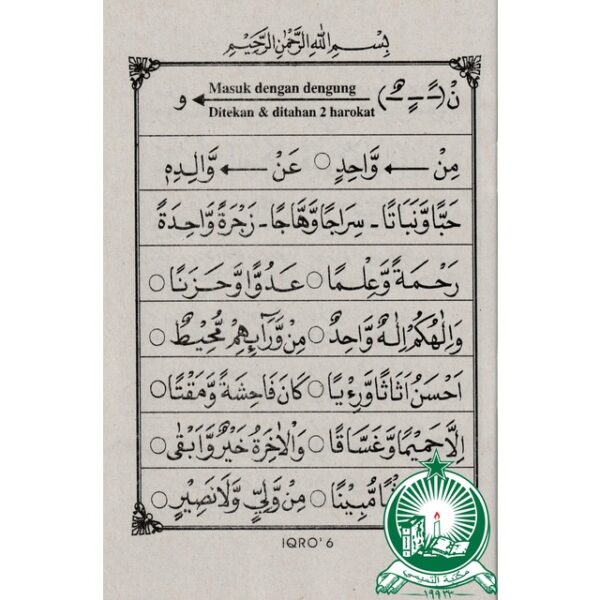 بِسْمِ اللهِ الرَّحْمٰنِ الرَّحِيْمِ
نْ (ــًــ ــٍــ ــٌــ) ← و
Masuk dengan dengung
Ditekan & ditahan 2 harokat
مِنْ ← وَّاحِدٍ ○ عَنْ ← وَّالِدِهٖ
حَبًّا وَّنَبَاتًا - سِرَاجًا وَّهَّاجًا - زَجْرَةً وَّاحِدَةً
رَحْمَةً وَّعِلْمًا ○ عَدُوًّا وَّحَزَنًا ○
وَاِلٰهُكُمْ اِلٰهٌ وَّاحِدٌ ○ مِنْ وَّرَآىِٕهِمْ مُّحِيْطٌ ○
اَحْسَنُ اَثَاثًا وَّرِءْيًا ○ كَانَ فَاحِشَةً وَّمَقْتًا ○
اِلَّا حَمِيْمًا وَّغَسَّاقًا ○ وَالْاٰخِرَةُ خَيْرٌ وَّاَبْقٰى ○
مُّبِيْنًا ○ مِنْ وَّلِيٍّ وَّلَا نَصِيْرٍ ○
IQRO' 6